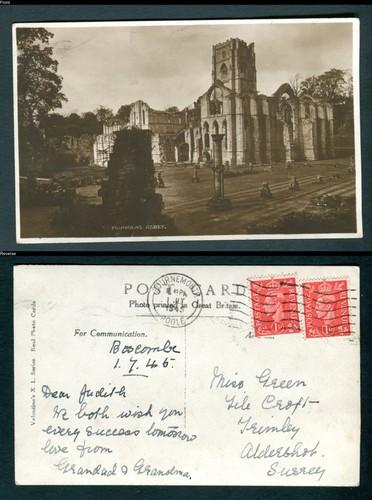 Front
FOUNTAINS ABBEY.
Reverse
POST CARD
Photo printed in Great Britain.
BOURNEMOUTH
POOLE
For Communication.
Boscombe
1.7.45.
Dear Judith
We both wish you
every success tomorrow
love from
Grandad & Grandma.
Miss Green
Tile Croft
Frimley
Aldershot
Surrey
Valentine's X L Series Real Photo Cards